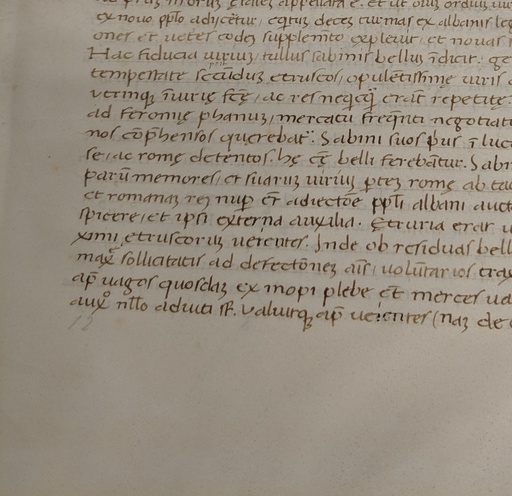 ex novo pplo adijceretur, equitũ decẽ turmas ex albanis leg
ones et veteres eodẽ supplemẽto explevit, et novas
Hac fiducia viriuȝ, tullus sabinis bellũ ĩdicit. ge
tempestate secũduȝ etruscos, opulẽtissimę viris a
utrinqȝ ĩiurię fcę, ac res neqcq̃ erãt repetitę.
ad feronię phanuȝ, mercatu freqnti negotiat
nos cõphensos querebat̃. Sabini suos prius ĩ luc
se, ac romę detentos. hę cę belli ferebãtur. Sabi
parũ memores, et suaruȝ viriuȝ ptẽȝ romę ab ta
et romanaȝ rẽȝ nup et adiectiõe ppli albani auct
spicere, et ipsi externa auxilia. Etruria erat v
ximi etruscoruȝ veientes. Inde ob residuas bell
maxe sollicitatis ad defectõneȝ aĩs, volũtarios trax
ap vagos quosdaȝ ex inopi plebe et merces va
auxo nllo adiuti st̃. Valuitqȝ ap veientes (naȝ de